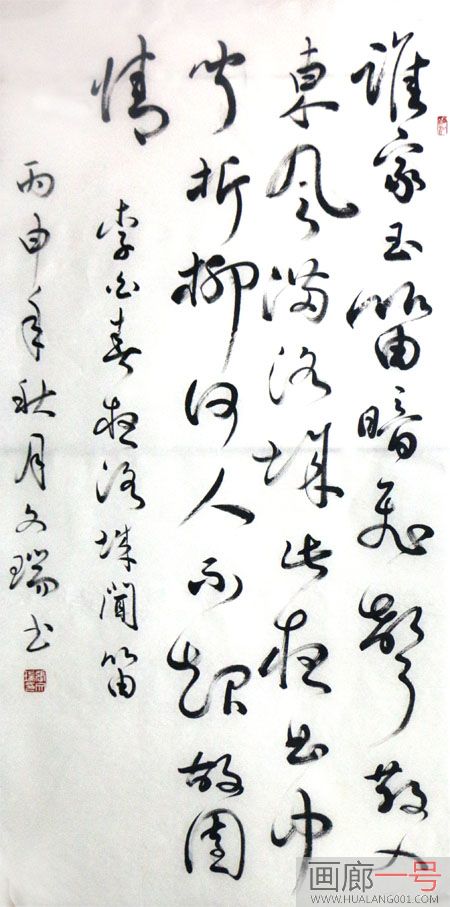 誰家玉笛暗飛聲散入
東風滿洛城此夜曲中
聞折柳何人不起故園
情
李白春夜洛城聞笛
丙申年秋月文瑞书
画廊一号
WWW.HUALANG001.COM